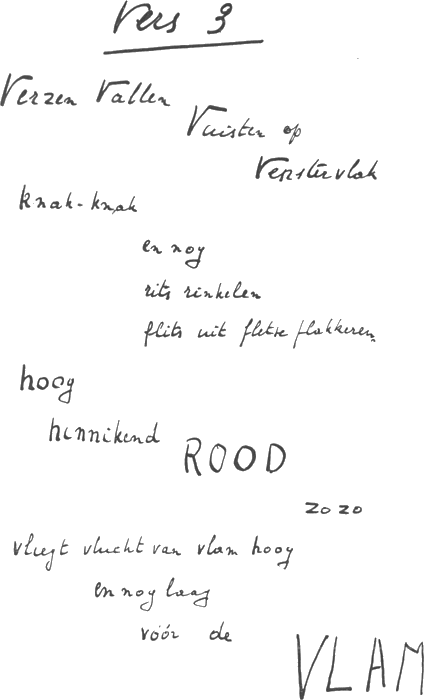 Vers 3
Verzen vallen
Vuisten op
Venstervlak
knak-knak
en nog
rits rinkelen
flits uit fletse flakkeren
hoog
hinnikend ROOD
zozo
vliegt vlucht van vlam hoog
en nog laag
vóór de
VLAM